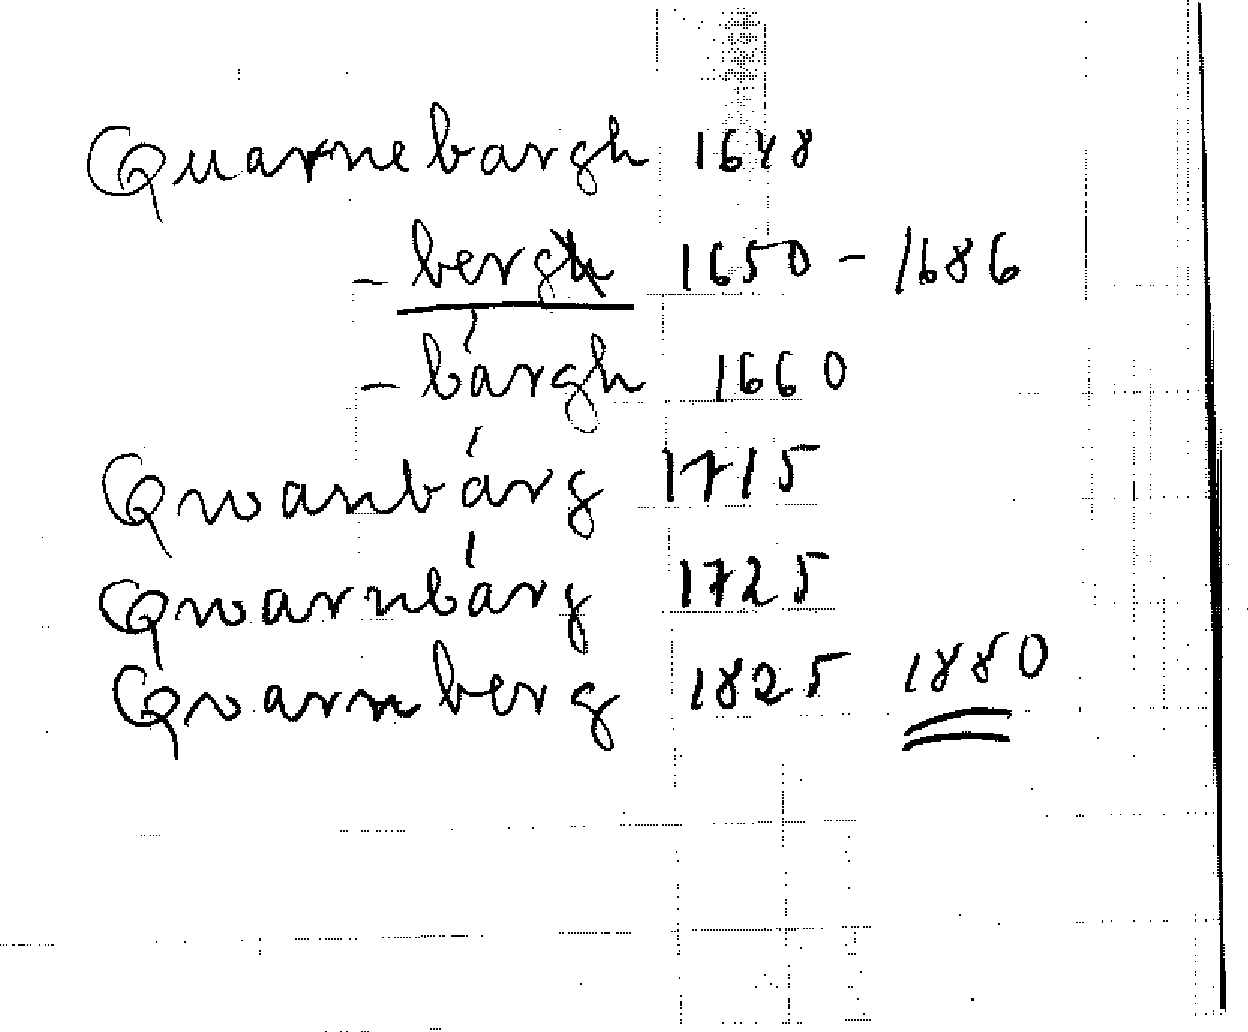 Quarnebargh 1648
- bergh 1650 - 1686
- bárgh 1660
Qvanbárg 1715
Qvarnbárg 1725
Qvarnberg 1825 1880